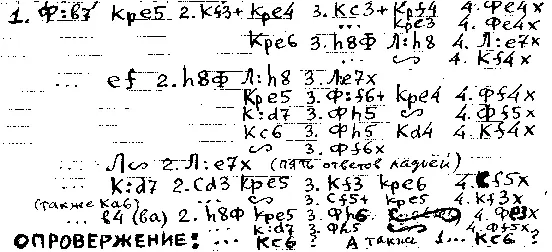 1. Ф:b7 Kpe5 2. Kf3+ Kpe4 3. Kc3+ Kpf4 4. Фe4x
... Kpe3 4. Фe4x
Kpe6 3. h8Ф Л:h8 4. Л:e7x
... ~ 4. Kf4x
... ef 2. h8Ф Л:h8 3. Лe7x
Kpe5 3. Ф:f6+ Kpe4 4. Фf4x
K:d7 3. Фh5 ~ 4. Фf5x
Kc6 3. Фh5 Kd4 4. Kf4x
... ~ 3. Фf6x
... Л~ 2. Л:e7x (пять ответов ладьей)
... K:d7 2. Cd3 Kpe5 3. Kf3 Kpe6 4. Cf5x
(также Ka6) ... ~ 3. Cf5+ Kpe5 4. Kf3x
... b4 (ba) 2. h8Ф Kpe5 3. Фh6 4. Фe3x
... K:d7 3. Фh5 4. Фf5x
ОПРОВЕРЖЕНИЕ: ... Kc6 ? А также 1... Kc6 ?